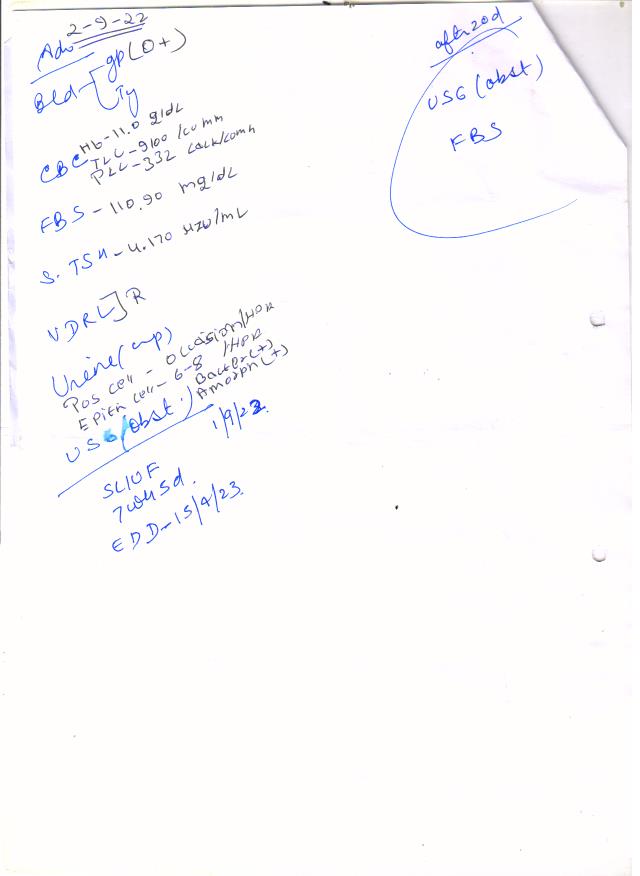 2-9-22
Adv
Bld gp (O+)
Ty
CBC Hb-11.0 g/dL
TLC-9100 /cumm
PLC-332 Lack/comm
FBS - 110.90 mg/dL
S. TSH - 4.170 uIU/mL
VDRL] R
Urine (
Pos cell - Occasion/HPR
Epith cell - 6-8 /HPR
Bacter (+)
Amorph (+)
USG (obst.) 1/9/22
SLIUF
7w4 5d.
EDD-15/4/23.
after 20d
USG (obst)
FBS